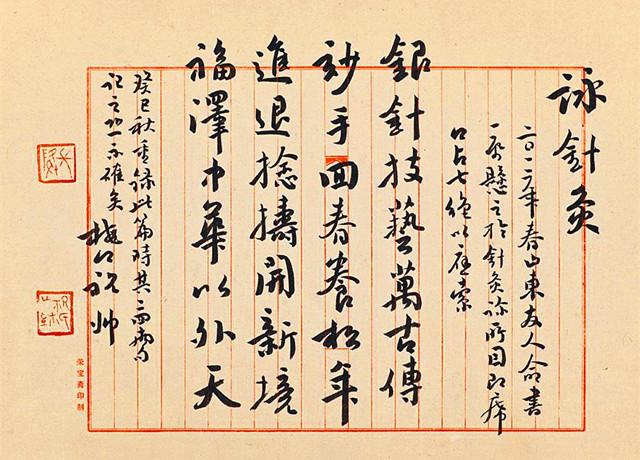 詠針灸
二〇一二年春山東友人命書
一帋懸之於針灸診所因即席
口占七絕以應索
銀針技藝萬古傳
玅手回春養松年
進退捻擣開新境
福澤中華以外天
癸巳秋重錄此篇時其
記之亦確矣
祝帥
榮宝齋印制